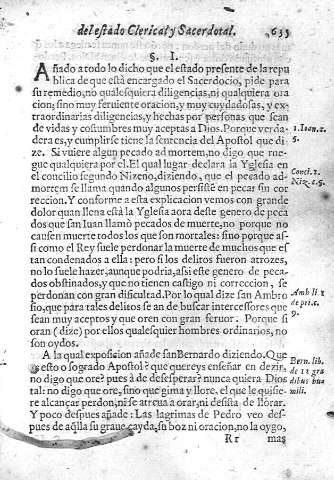 del estado Clerical y Sacerdotal. 633
§. I.
Añado a todo lo dicho que el estado presente de la repu
blica de que està encargado el Sacerdocio, pide para
su remedio, no qualesquiera diligencias, ni qualquiera ora
cion; sino muy feruiente oracion, y muy cuydadosas, y ex-
traordinarias diligencias, y hechas por personas que sean
de vidas y costumbres muy aceptas a Dios. Porque verda-
dera es, y cumplirse tiene la sentencia del Apostol que di-
ze. Si uuiere algun pecado ad mortem, no digo que rue-
gue qualquiera por el. El qual lugar declara la Yglesia en
el concilio segundo Nizeno, diziendo, que el pecado ad
mortem se llama quando algunos persistẽ en pecar sin cor
reccion. Y conforme a esta explicacion vemos con grande
dolor quan llena està la Yglesia aora deste genero de peca
dos que san Iuan llamò pecados de muerte, no porque no
causen muerte todos los que son mortales: sino porque as-
si como el Rey suele perdonar la muerte de muchos que es
tan condenados a ella: pero si los delitos fueron atrozes,
no lo suele hazer, aunque podria, assi este genero de peca-
dos obstinados, y que no tienen castigo ni correccion, se
perdonan con gran dificultad. Por lo qual dize san Ambro
sio, que para tales delitos se an de buscar intercessores que
sean muy aceptos y que oren con gran feruor. Porque si
oran (dize) por ellos qualesquier hombres ordinarios, no
son oydos.
A la qual exposicion añade san Bernardo diziendo. Que
es esto o sagrado Apostol? que quereys enseñar en dezir,
no digo que ore? pues à de desesperar? nunca quiera Dios
tal: no digo que ore, sino que gima y llore. el que le quisie-
re alcançar perdon, ni se atreua a orar, ni desista de llorar.
Y poco despues añade: Las lagrimas de Pedro veo des-
pues de aq̃lla su graue cayda, su boz ni oracion, no la oygo,
Rr mas
1. Ioan. c.
5.
Conci. 1.
Niz. c. 5.
Amb li. 1
de pri. c.
9.
Bern. lib.
de 12 gra
dibus hu
mili.